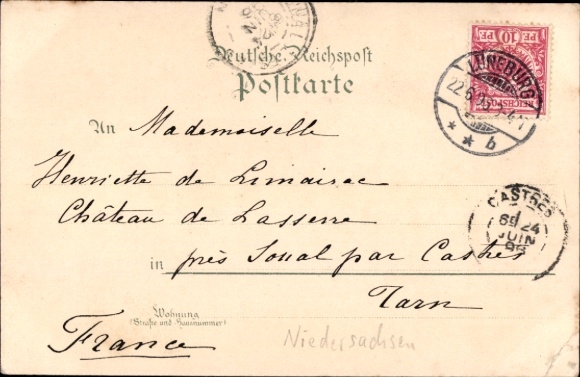 Deutsche Reichspost
Postkarte
PF. 10 PF.
REICHSPOST
LÜNEBURG
* * b
An Mademoiselle
Henriette de Limairac
Château de Lasserre
in près Soual par Castres
Tarn
CASTRES
24
JUIN
Wohnung
(Straße und Hausnummer)
France
Niedersachsen